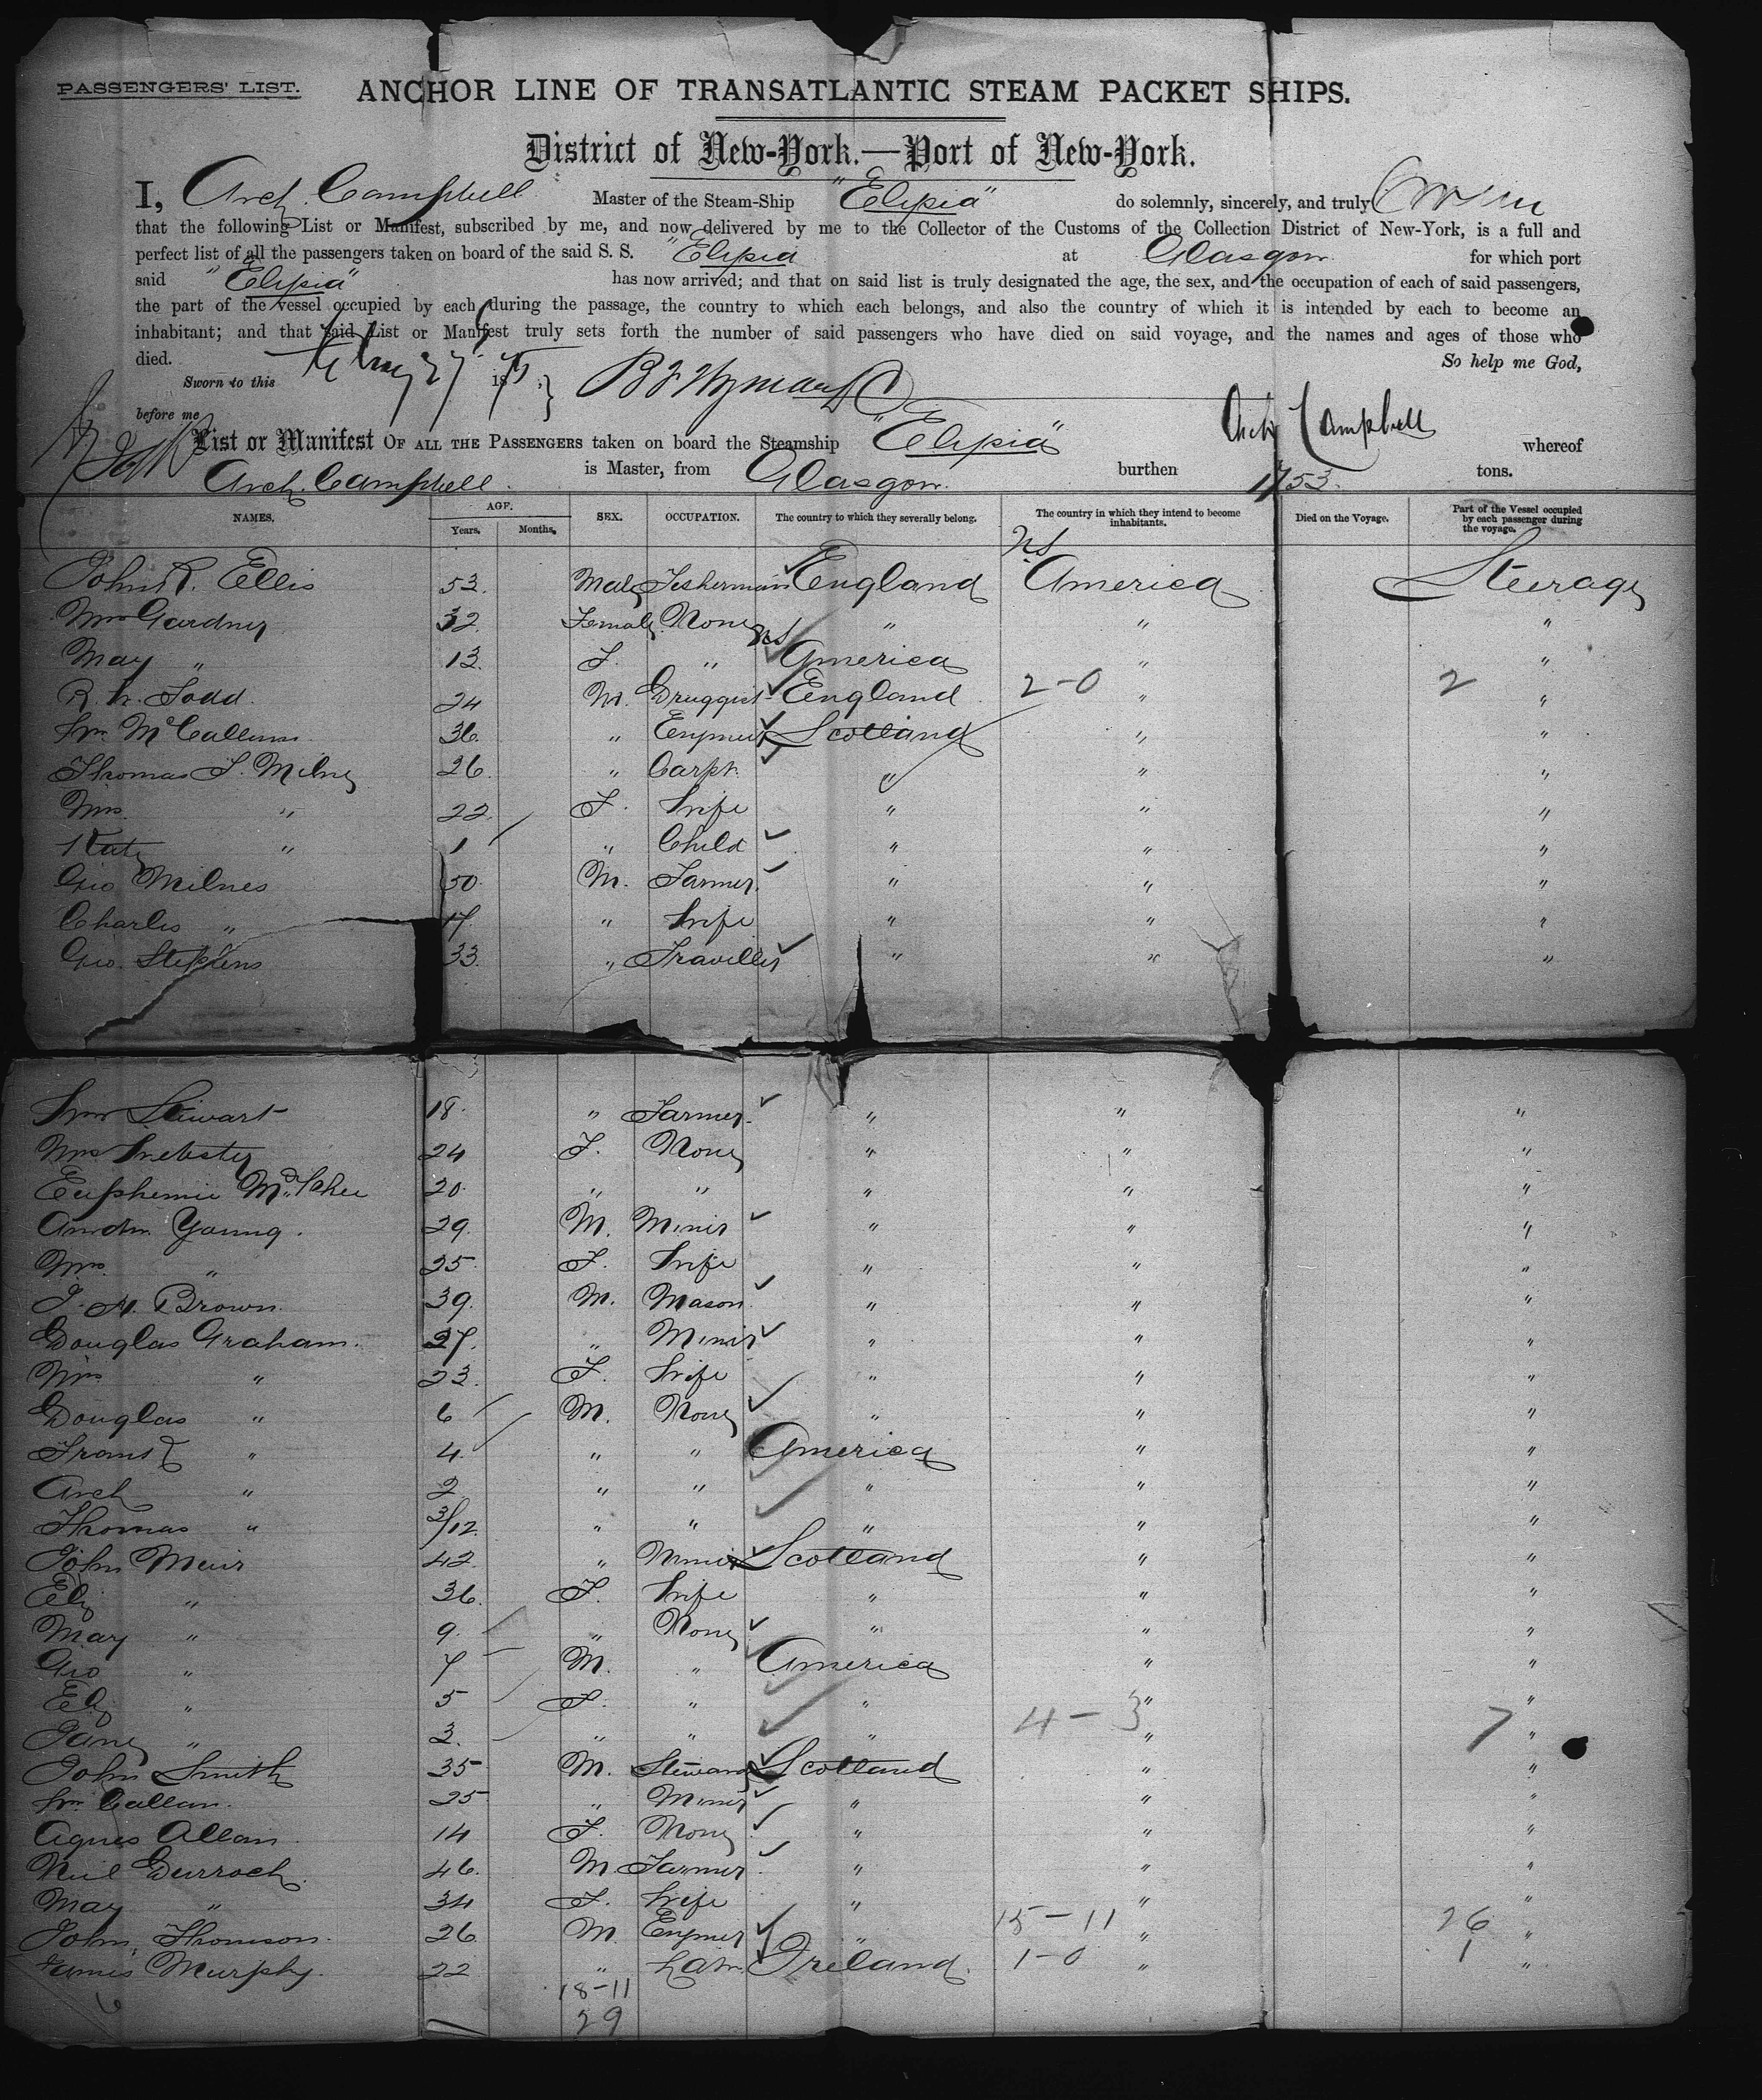 PASSENGERS' LIST. ANCHOR LINE OF TRANSATLANTIC STEAM PACKET SHIPS.
District of New-York.—Port of New-York.
I, Arch. Campbell Master of the Steam-Ship "Elysia" do solemnly, sincerely, and truly
that the following List or Manifest, subscribed by me, and now delivered by me to the Collector of the Customs of the Collection District of New-York, is a full and
perfect list of all the passengers taken on board of the said S. S. "Elysia at Glasgow for which port
said "Elysia" has now arrived; and that on said list is truly designated the age, the sex, and the occupation of each of said passengers,
the part of the vessel occupied by each during the passage, the country to which each belongs, and also the country of which it is intended by each to become an
inhabitant; and that said List or Manifest truly sets forth the number of said passengers who have died on said voyage, and the names and ages of those who
died. So help me God,
Sworn to this 27 18
before me Arch Campbell
List or Manifest OF ALL THE PASSENGERS taken on board the Steamship "Elysia" whereof
Arch. Campbell. is Master, from Glasgow. burthen 1753. tons.
NAMES. AGE. Years. Months. SEX. OCCUPATION. The country to which they severally belong. The country in which they intend to become inhabitants. Died on the Voyage. Part of the Vessel occupied by each passenger during the voyage.
John R. Ellis 53. Male Fisherman England America Steerage
Mrs Gardner 32. Female None " " "
May " 13. F. " America " "
R. W. Todd. 24 M. Druggist England 2-0 " 2 "
Wm McCallum 36. " Scotland " "
Thomas F. Milne 26. " Carptr. " " "
Mrs. " 22 F. Wife " " "
Kate " 1 " Child " " "
Geo Milnes 50. M. Farmer. " " "
Charles " 17. " Wife " " "
Geo. Stephens 33. " Traveller " " "
Wm Stewart 18. " Farmer. " " "
Mrs Webster 24 F. None " " "
Euphemia 20. " " " " "
Andw. Young. 29. M. Miner " " "
Mrs. " 25. F. Wife " " "
Brown. 39. M. Mason. " " "
Douglas Graham. 27. " Miner " " "
Mrs " 23. F. Wife " " "
Douglas " 6 M. None " " "
Frank " 4. " " America " "
Arch " 2 " " " " "
Thomas " 3/12. " " " " "
John Muir 42. " Miner Scotland " "
Eliz " 36. F. Wife " " "
May " 9. " None " " "
Geo " 7 M. " America " "
Eliz " 5 F. " " " "
Jane " 2. " " " 4-3 " 7 "
John Smith 35 M. Steward Scotland " "
Wm. Callan. 25 " Miner " " "
Agnes Allan 14 F. None " " "
Neil Durroch. 46. M. Farmer. " " "
May " 34 F. Wife " " "
John Thomson. 26. M. " 15-11 " 26 "
James Murphy. 22 " Labr. Ireland. 1-0 " 1 "
18-11
29